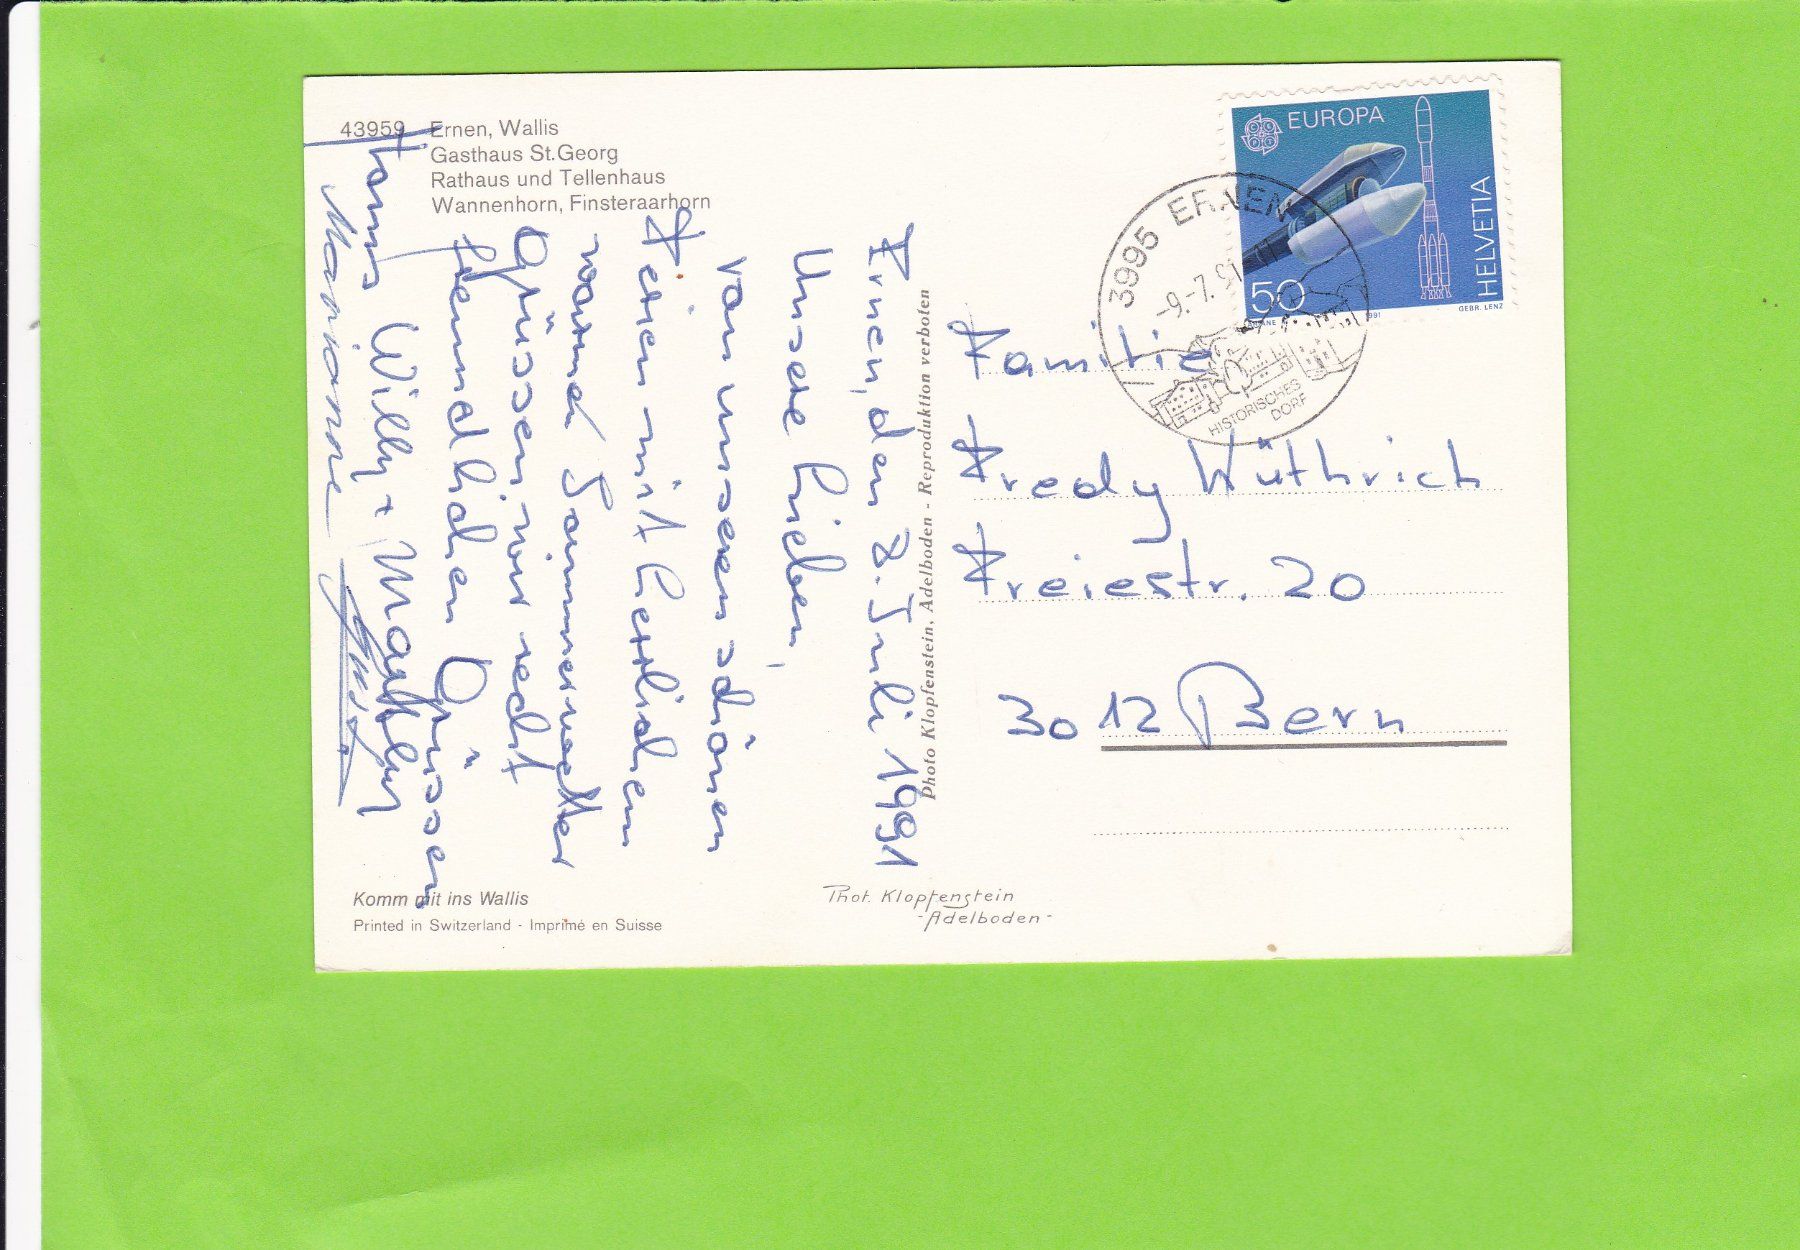 43959 Ernen, Wallis
Gasthaus St.Georg
Rathaus und Tellenhaus
Wannenhorn, Finsteraarhorn
Ernen, den 8. Juli 1991
Unsere Lieben,
von unseren schönen
Ferien mit herrlichem
warmen Sommerwetter
grüssen wir recht
freundlichen Grüssen
Hans Willy + Marthy
Marianne
Photo Klopfenstein, Adelboden - Reproduktion verboten
EUROPA
CEPT
HELVETIA
50
1991
GEBR. LENZ
3995 ERNEN
-9.-7.91
HISTORISCHES
DORF
Familie
Fredy Wüthrich
Freiestr. 20
3012 Bern
Komm mit ins Wallis
Printed in Switzerland - Imprimé en Suisse
Phot. Klopfenstein
-Adelboden-